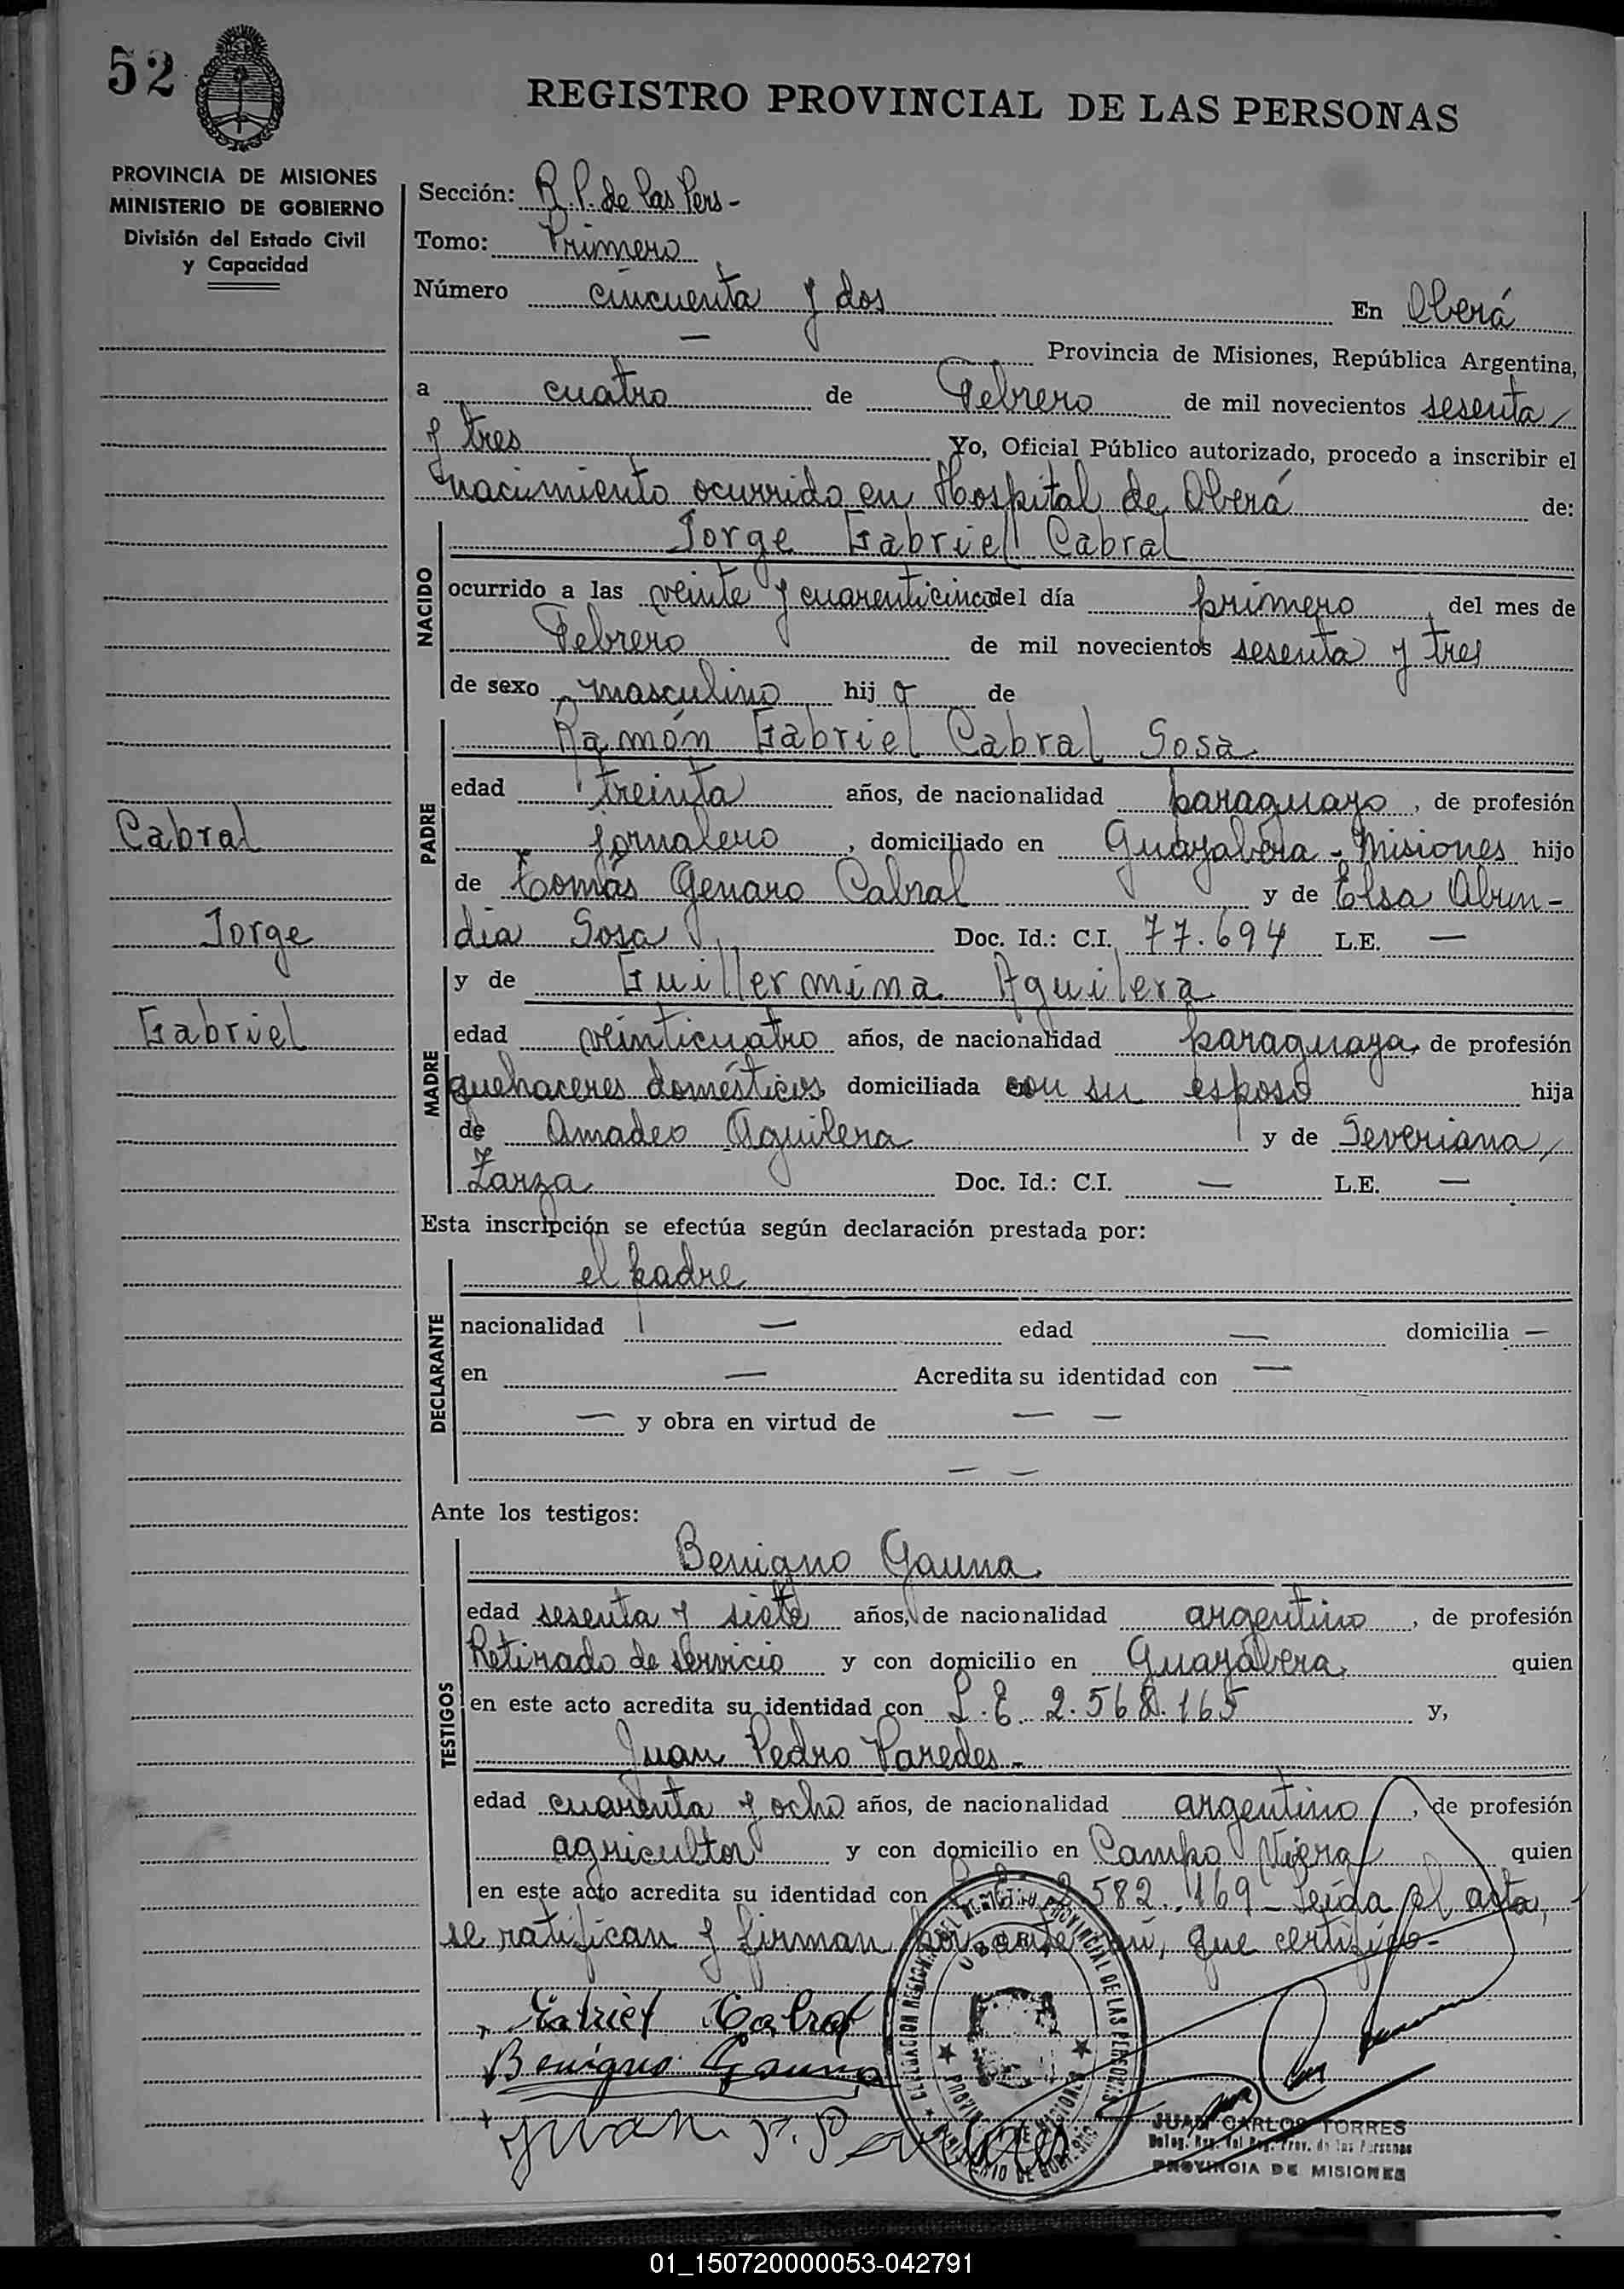 52
REGISTRO PROVINCIAL DE LAS PERSONAS
PROVINCIA DE MISIONES
MINISTERIO DE GOBIERNO
División del Estado Civil
y Capacidad
Sección: R. P. de las Pers -
Tomo: Primero
Número cincuenta y dos En Oberá
— Provincia de Misiones, República Argentina,
a cuatro de Febrero de mil novecientos sesenta
y tres Yo, Oficial Público autorizado, procedo a inscribir el
nacimiento ocurrido en Hospital de Oberá de:
NACIDO
Jorge Gabriel Cabral
ocurrido a las veinte y cuarenticinco del día primero, del mes de
Febrero de mil novecientos sesenta y tres
de sexo masculino hijo de
PADRE
Ramón Gabriel Cabral Sosa
edad treinta años, de nacionalidad paraguayo, de profesión
jornalero, domiciliado en Guayabera - Misiones hijo
de Tomás Genaro Cabral y de Elsa Abun-
dia Sosa Doc. Id.: C.I. 77.694 L.E. —
Cabral
Jorge
Gabriel
MADRE
y de Guillermina Aguilera
edad veinticuatro años, de nacionalidad paraguaya, de profesión
quehaceres domésticos domiciliada con su esposo hija
de Amadeo Aguilera y de Severiana
Zarza Doc. Id.: C.I. — L.E. —
Esta inscripción se efectúa según declaración prestada por:
DECLARANTE
el padre
nacionalidad — edad — domicilia —
en — Acredita su identidad con —
— y obra en virtud de — —
— —
Ante los testigos:
TESTIGOS
Benigno Gauna
edad sesenta y siete años, de nacionalidad argentino, de profesión
Retirado de servicio y con domicilio en Guayabera quien
en este acto acredita su identidad con L.E. 2.568.165 y,
Juan Pedro Paredes -
edad cuarenta y ocho años, de nacionalidad argentino, de profesión
agricultor y con domicilio en Campo Viera quien
en este acto acredita su identidad con 582.169 - Leída el acta,
se ratifican y firman por ante mí, que certifico -
Gabriel Cabral
Benigno Gauna
Juan P. Paredes
JUAN CARLOS TORRES
Deleg. Reg. del Reg. Prov. de las Personas
PROVINCIA DE MISIONES
01_150720000053-042791